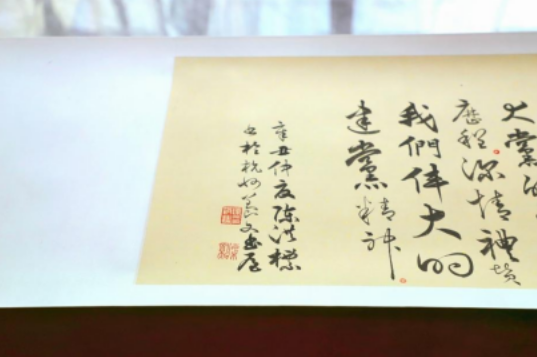 大黨
歷程深情禮讚
我們偉大的
建黨精神
辛丑仲夏陳洪標
書於杭州